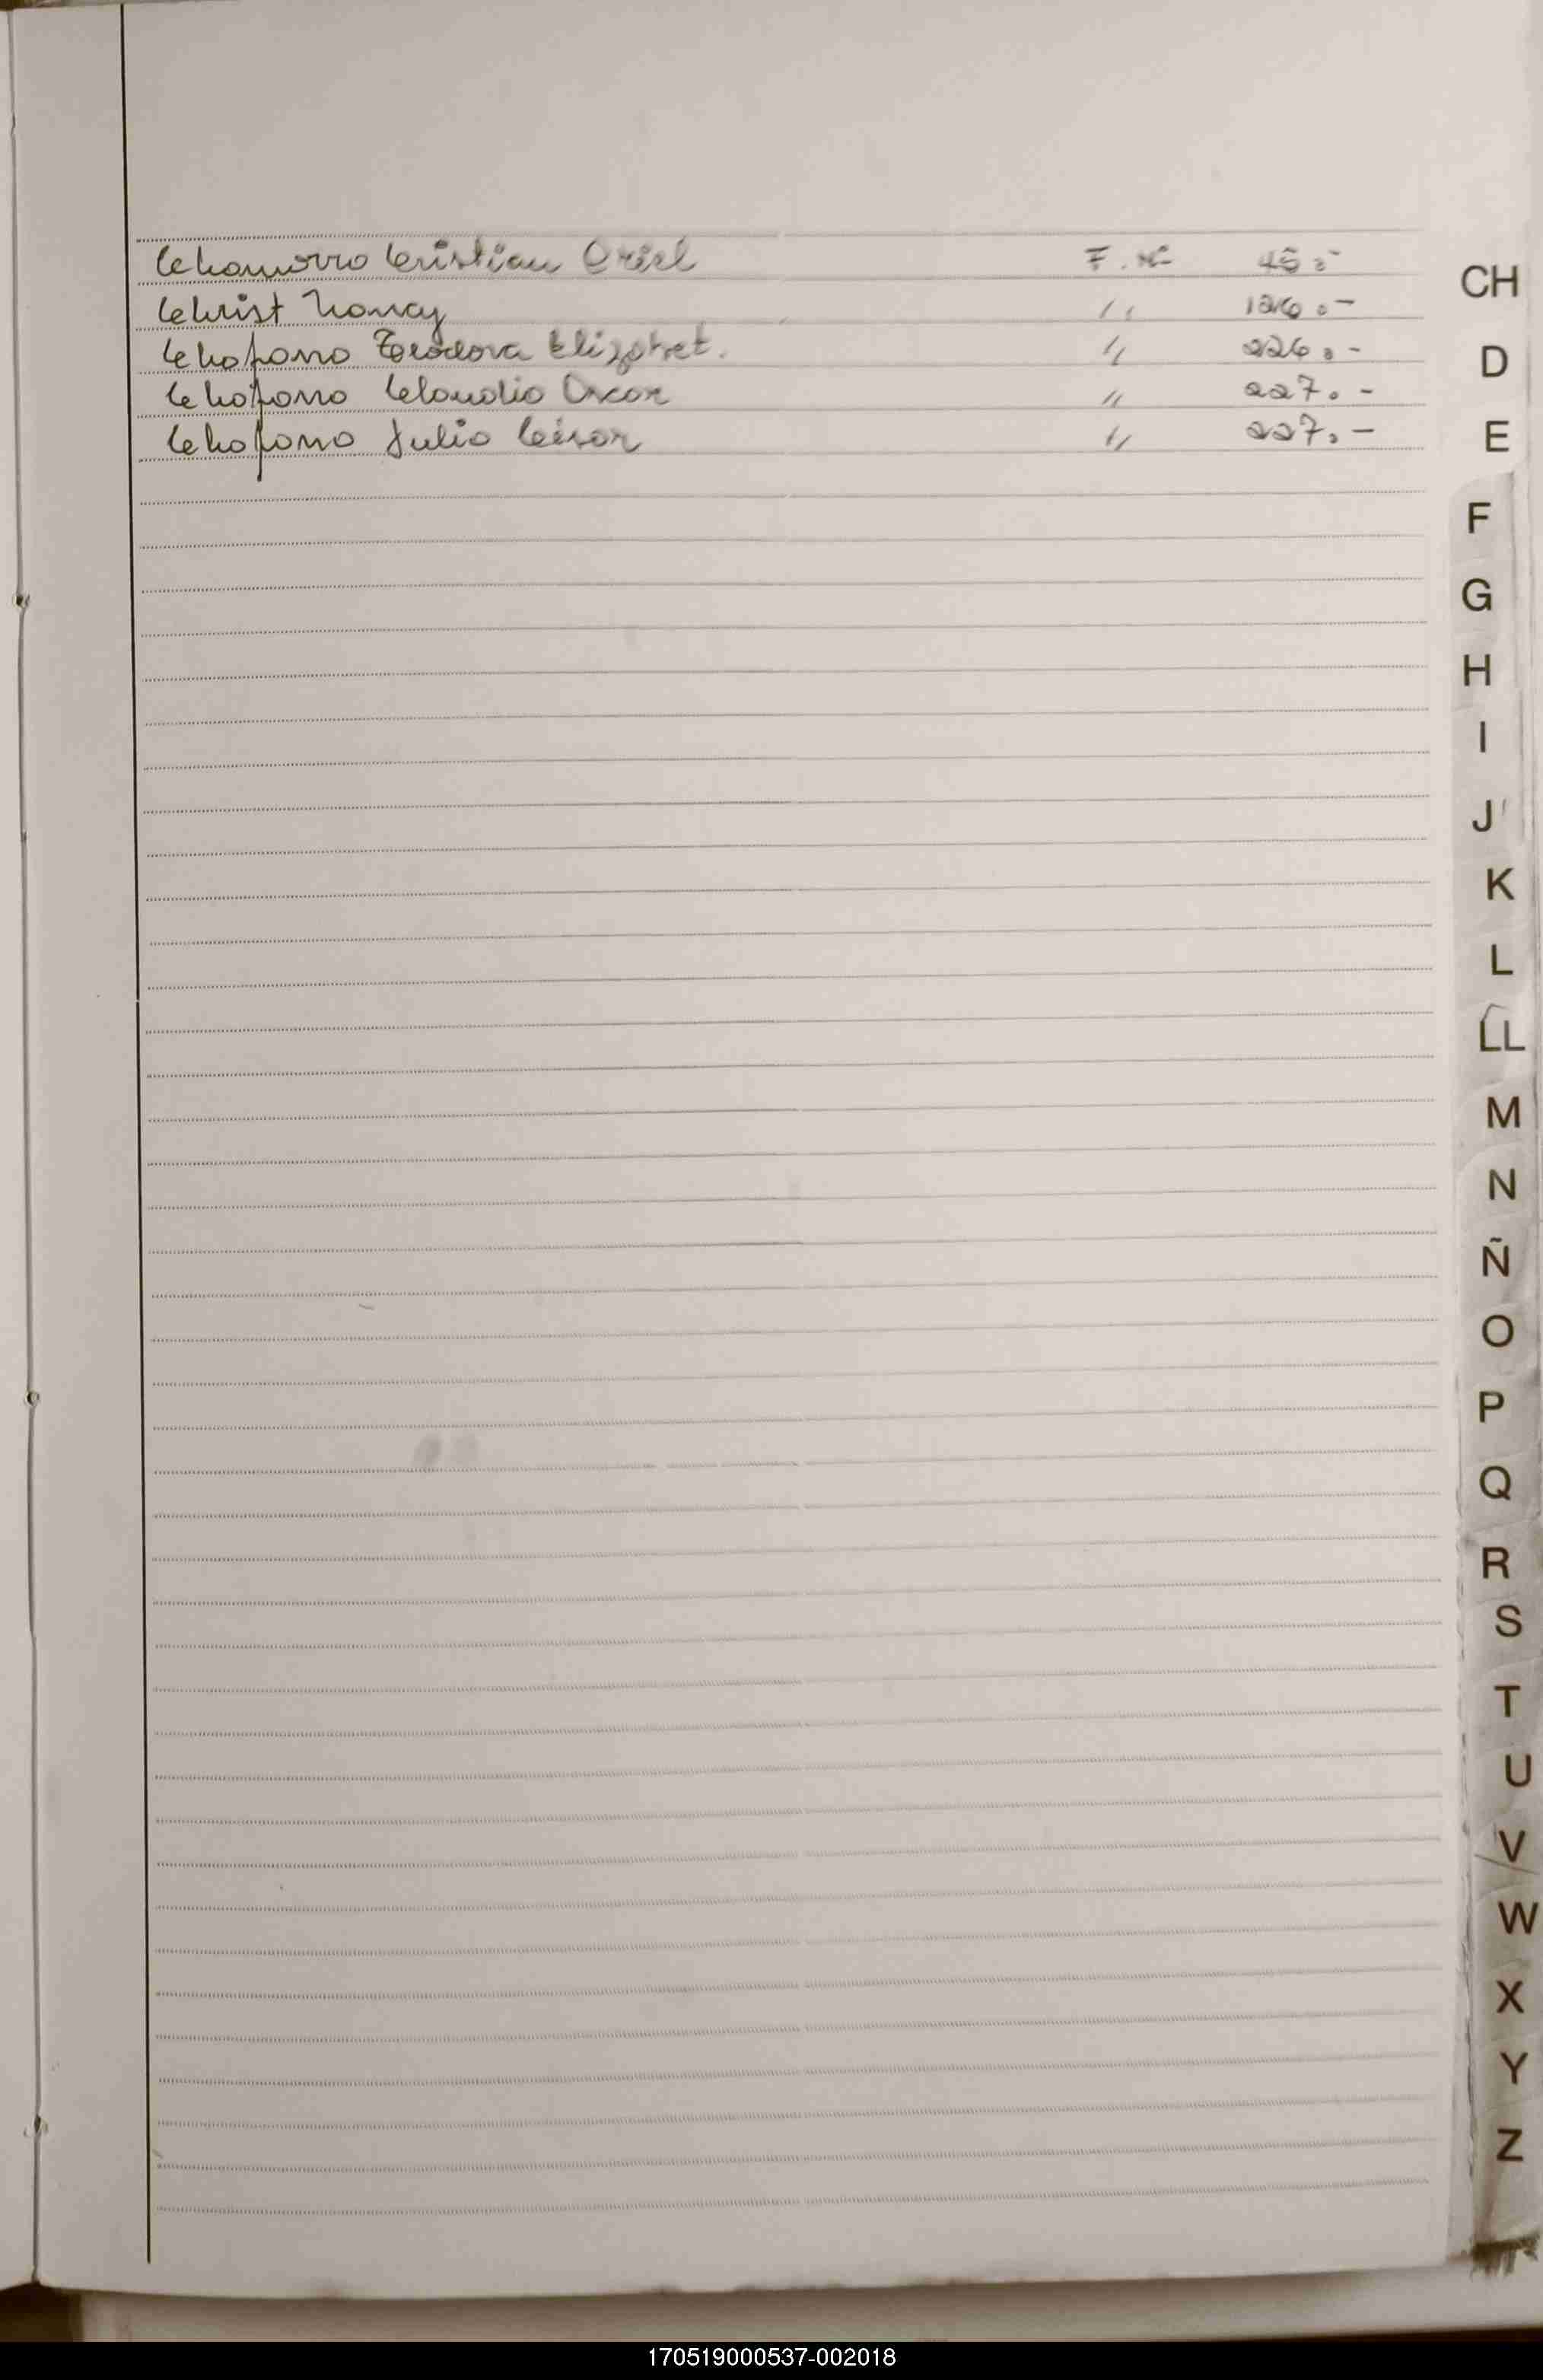 Chamorro Cristian Oriel F. Nº 45.-
Christ Nancy " 126.-
Chaparro Teodora Elizabet. " 226.-
Chaparro Claudio Oscar " 227.-
Chaparro Julio César " 227.-
CH
D
E
F
G
H
I
J
K
L
LL
M
N
Ñ
O
P
Q
R
S
T
U
V
W
X
Y
Z
170519000537-002018